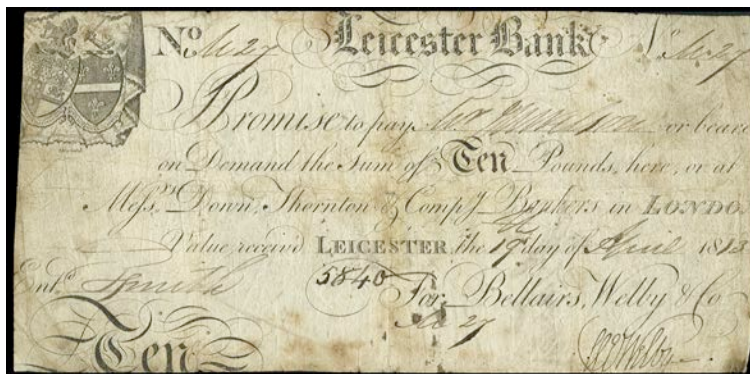 No M 27 Leicester Bank No M 27
Promise to pay or beare
on Demand the Sum of Ten Pounds, here, or at
Messrs. Down, Thornton & Compy. Bankers in LONDO
Value receivd LEICESTER, the 19th day of April 1813
Entd. Smith 5840 For, Bellairs, Welby & Co
No 27
Ten